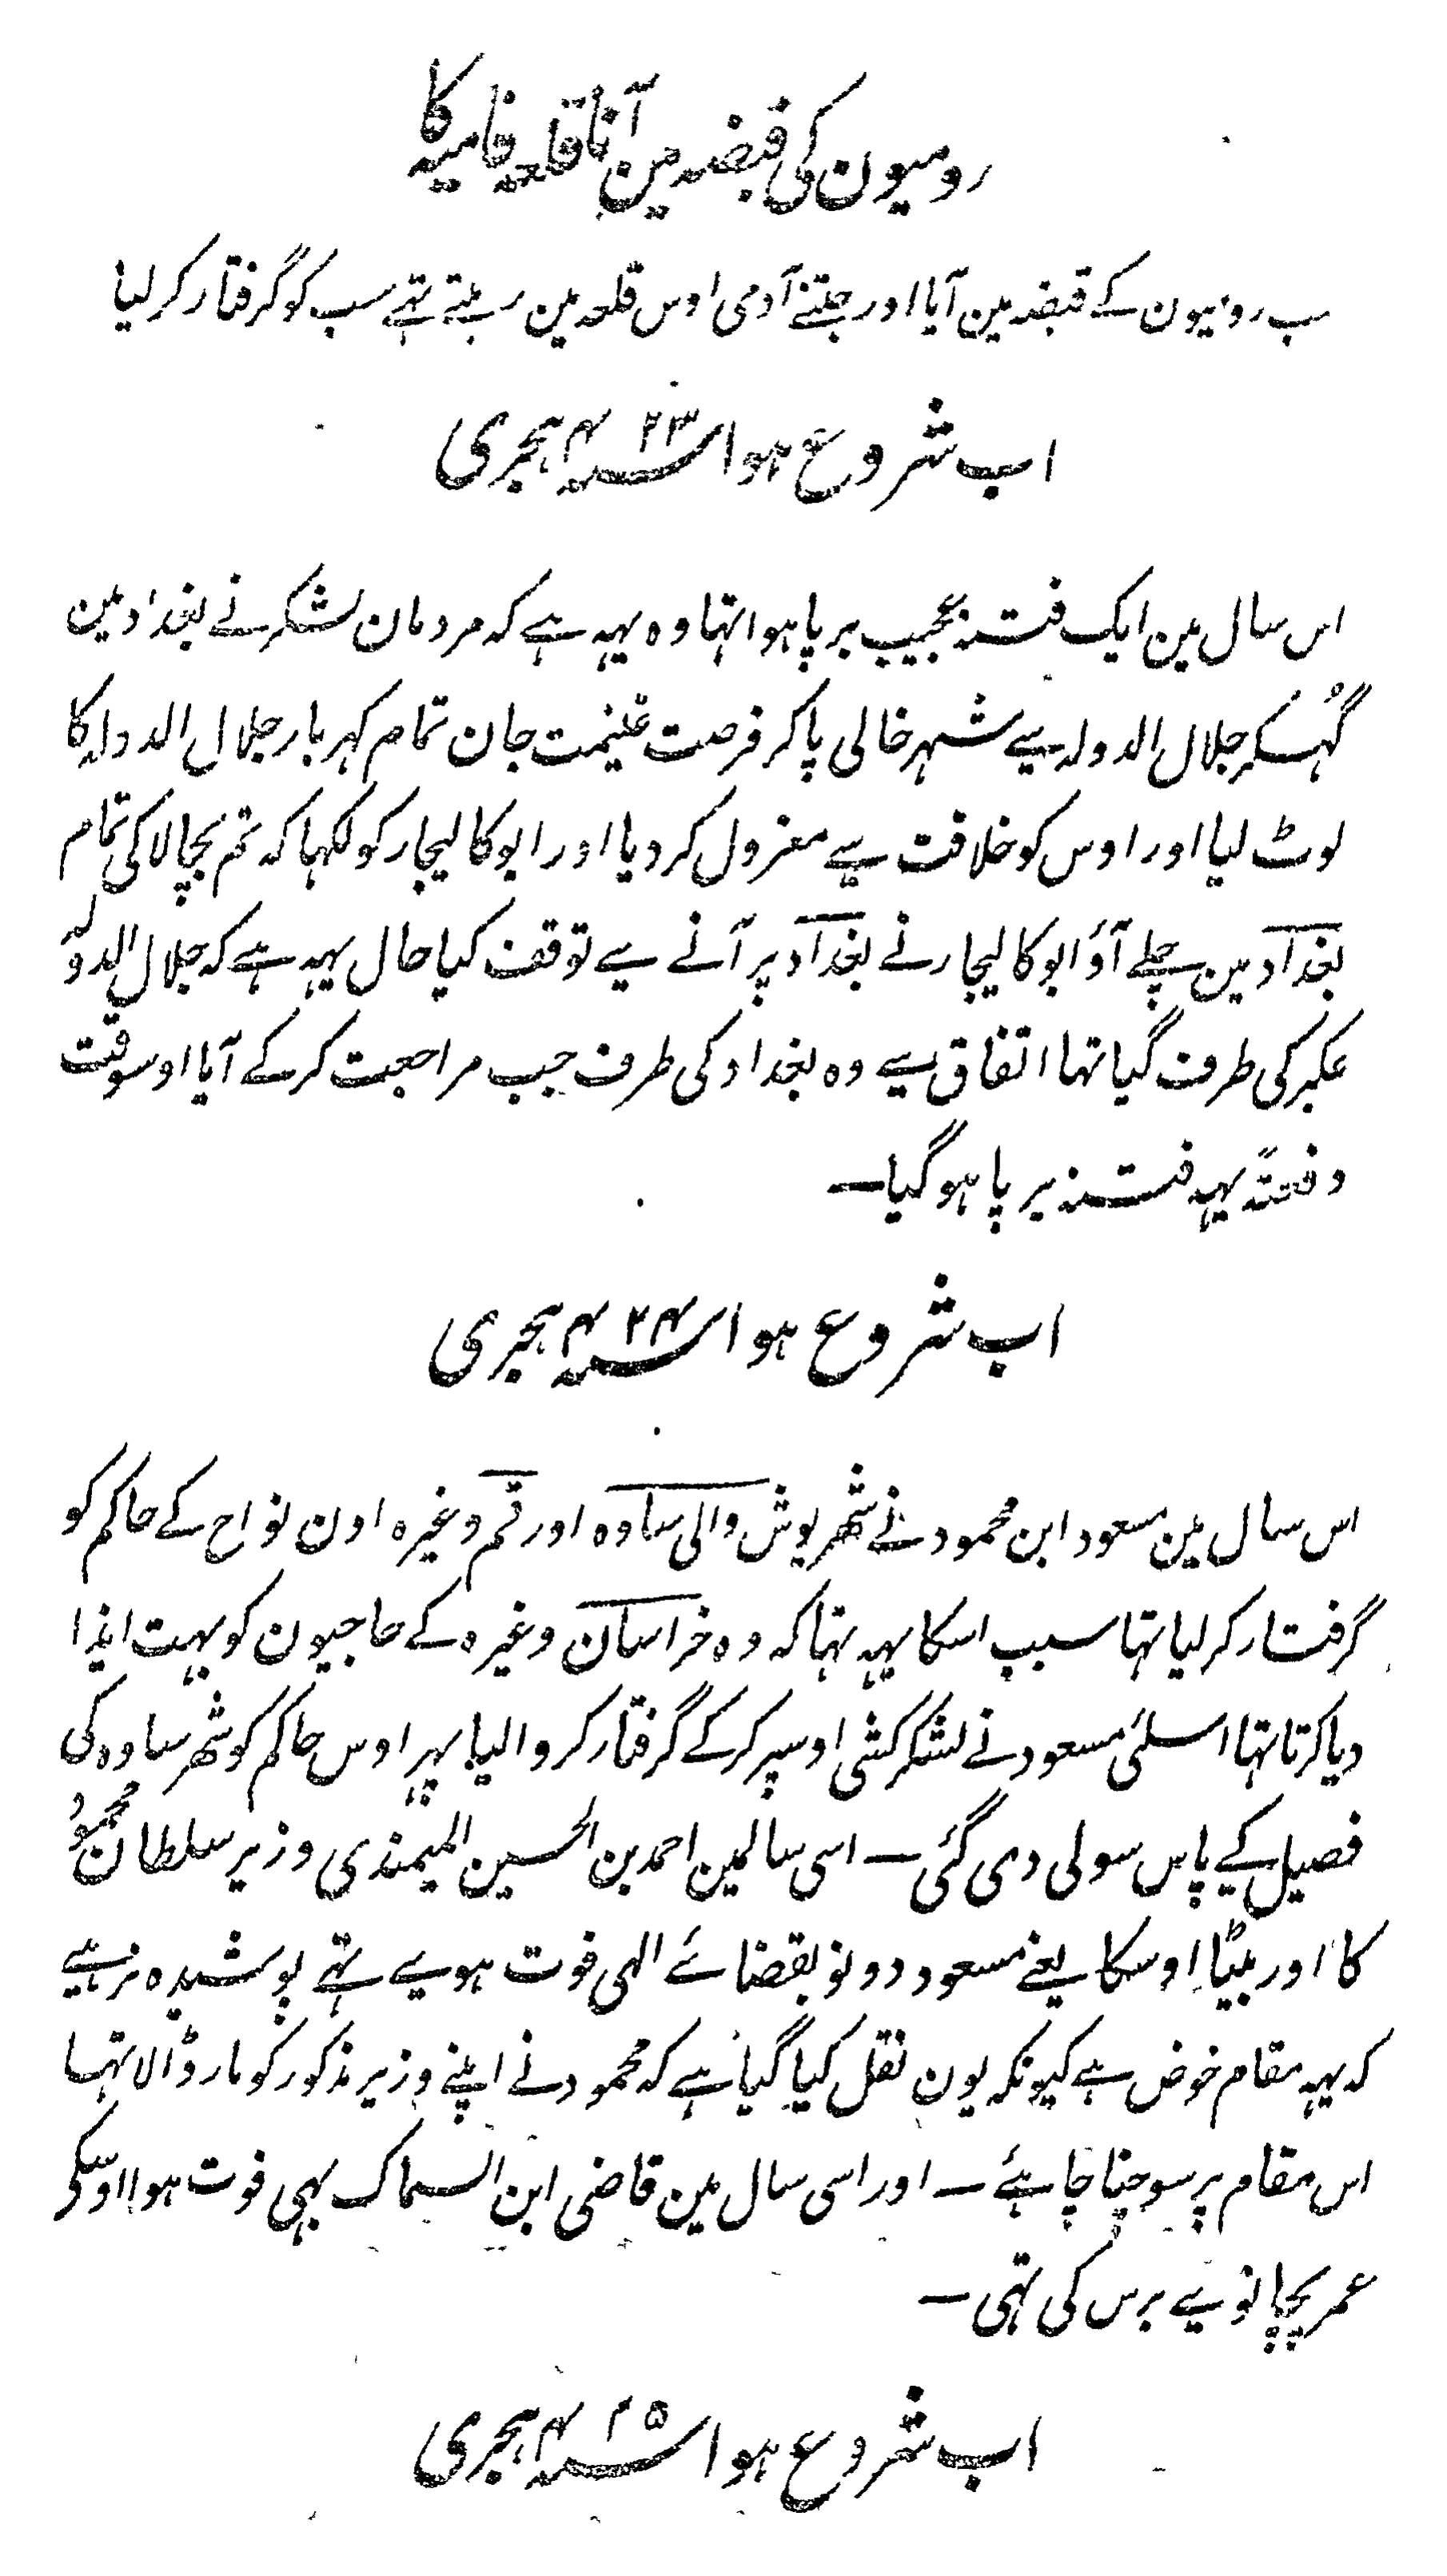 رومیون کی قبضہ مین آنا قلعہ فامیہ کا
سب رومیون کے قبضہ مین آیا اور جتنے آدمی اوس قلعہ مین رہتے تہے سب کو گرفتار کر لیا
اب شروع ہوا سنہ ۴۲۳ ہجری
اس سال مین ایک فتنہ عجیب برپا ہوا تہا وہ یہہ ہے کہ مردمان لشکر نے بغداد مین
گہسکر جلال الدولہ سے شہر خالی پا کر فرصت غنیمت جان تمام گہر بار جلال الدولہ کا
لوٹ لیا اور اوس کو خلافت سے معزول کر دیا اور ابو کالیجار کو لکہا کہ تم بچالاکی تمام
بغداد مین چلے آؤ ابو کالیجار نے بغداد پر آنے سے توقف کیا حال یہہ ہے کہ جلال الدولہ
عکبر کی طرف گیا تہا اتفاق سے وہ بغداد کی طرف جب مراجعت کر کے آیا اوسوقت
دفعتہً یہہ فتنہ برپا ہو گیا۔
اب شروع ہوا سنہ ۴۲۴ ہجری
اس سال مین مسعود ابن محمود نے شہریوش والی ساوہ اور قم وغیرہ اون نواح کے حاکم کو
گرفتار کر لیا تہا سبب اسکا یہہ تہا کہ وہ خراسان وغیرہ کے حاجیون کو بہت ایذا
دیا کرتا تہا اسلئی مسعود نے لشکر کشی اوسپر کر کے گرفتار کروا لیا پہر اوس حاکم کو شہر ساوہ کی
فصیل کے پاس سولی دی گئی ۔ اسی سالمین احمد بن الحسین المیمندی وزیر سلطان محمود
کا اور بیٹا اوسکا یعنے مسعود دونو بقضائے الہی فوت ہوے تہے پوشیدہ نرہے
کہ یہہ مقام خوض ہے کیونکہ یون نقل کیا گیا ہے کہ محمود نے اپنے وزیر مذکور کو مار ڈالا تہا
اس مقام پر سوچنا چاہئے ۔ اور اسی سال مین قاضی ابن السماک بہی فوت ہوا اوسکی
عمر پچانوے برس کی تہی ۔
اب شروع ہوا سنہ ۴۲۵ ہجری